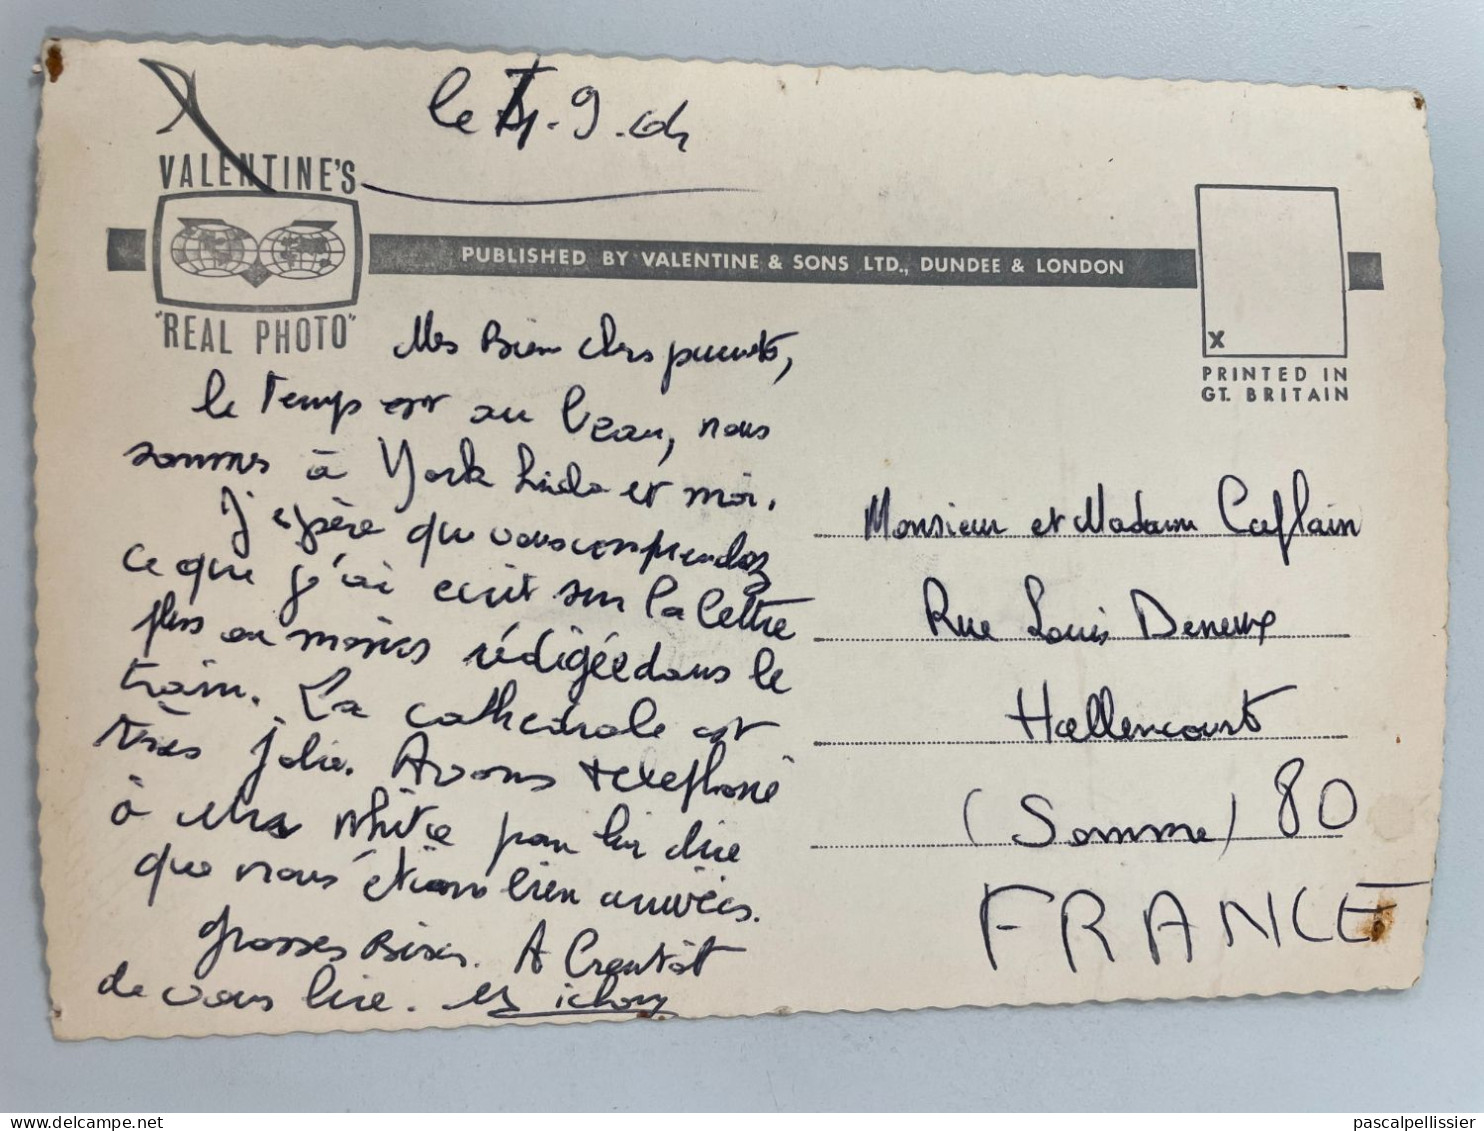 le 4.9.64
VALENTINE'S
PUBLISHED BY VALENTINE & SONS LTD., DUNDEE & LONDON
"REAL PHOTO"
X
PRINTED IN
GT. BRITAIN
Mes Bien chers parents,
le temps est au beau, nous
sommes à York Linda et moi.
J'espère que vous comprendrez
ce que j'ai ecrit sur la lettre
plus ou moins rédigée dans le
train. La cathedrale est
très jolie. Avons telephoné
à Mrs White pour lui dire
que nous étions bien arrivées.
grosses Bises. A bientôt
de vous lire.
Monsieur et Madame Caflain
Rue Louis Deneux
Hallencourt
(Somme) 80
FRANCE
pascalpellissier